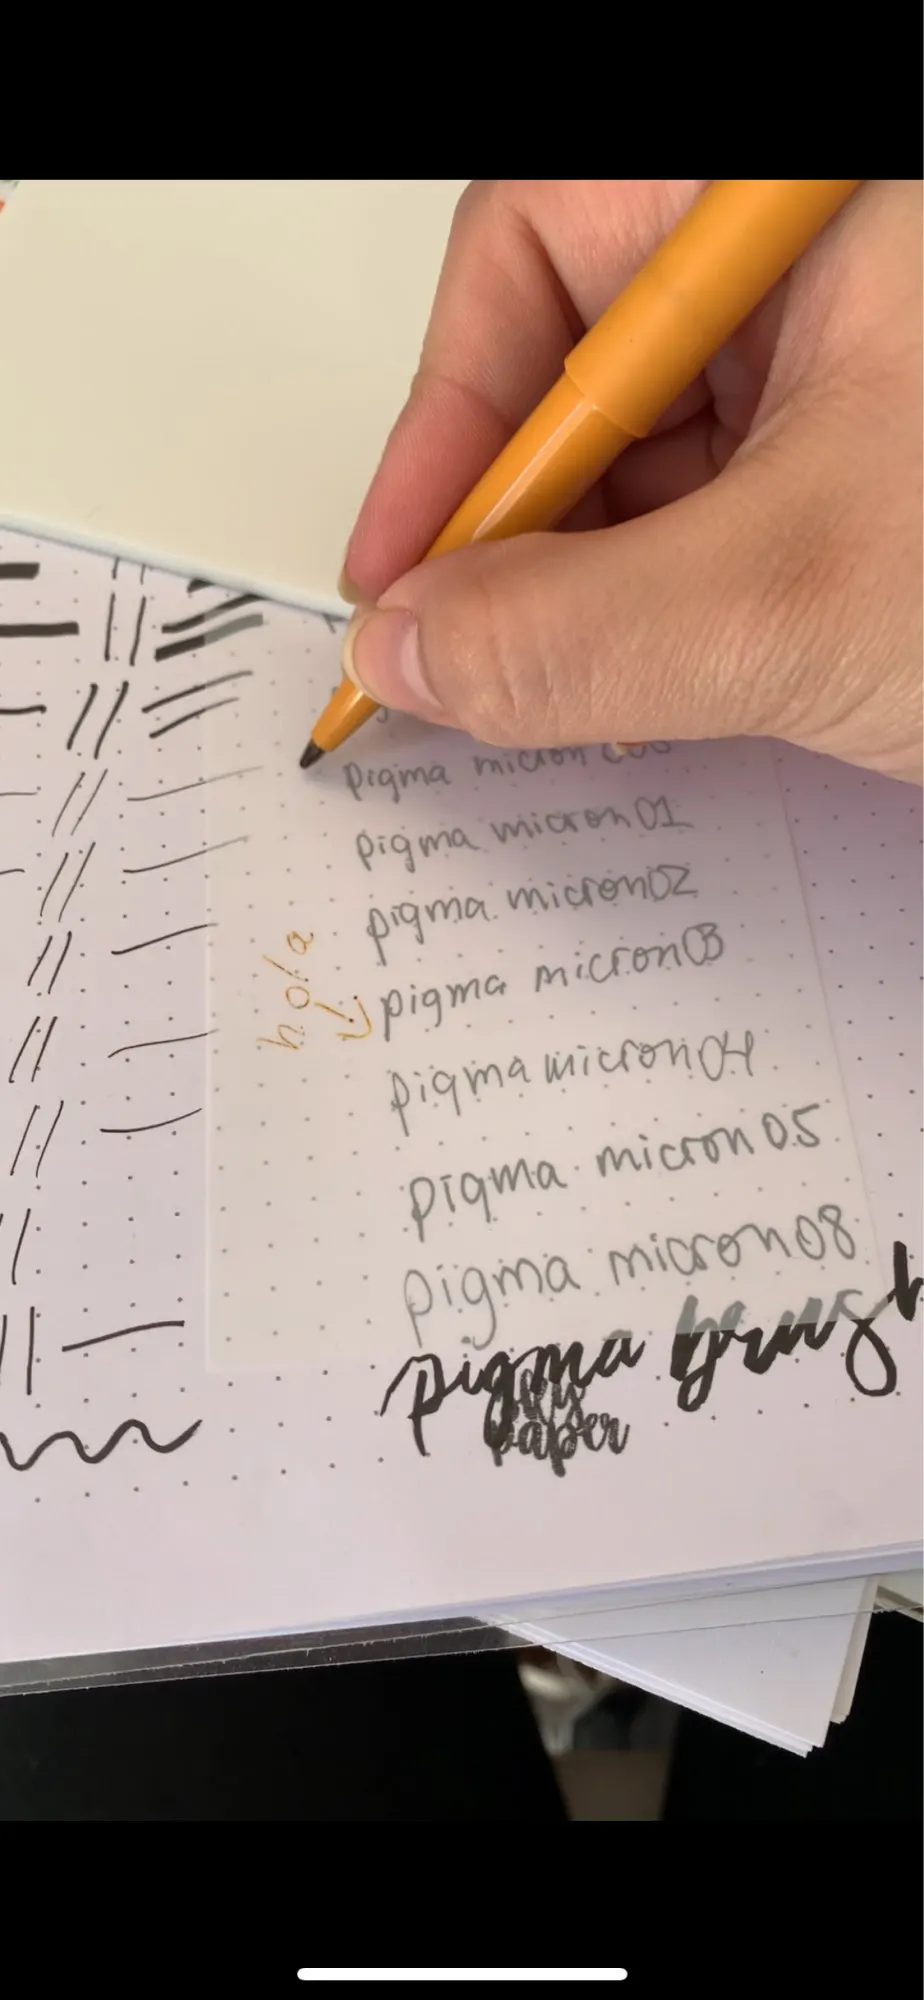 pigma micron 005
pigma micron 01
pigma micron 02
pigma micron 03
hola
pigma micron 04
pigma micron 05
pigma micron 08
pigma brush
paper